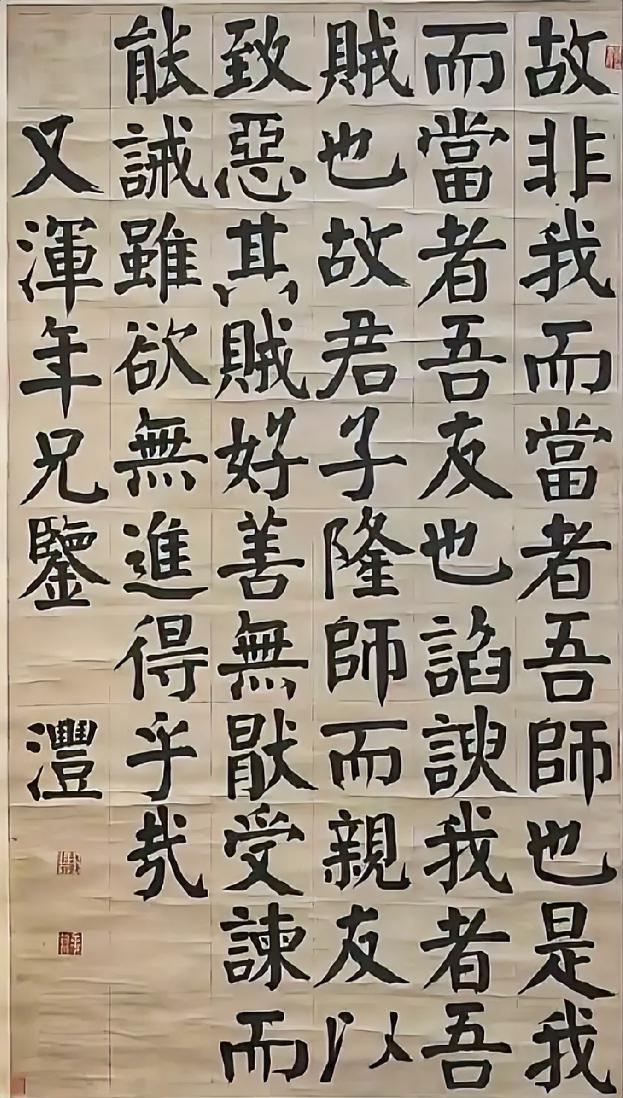 故非我而當者吾師也是我
而當者吾友也諂諛我者吾
賊也故君子隆師而親友以
致惡其賊好善無猒受諫而
能誡雖欲無進得乎哉
又渾年兄鑒 灃